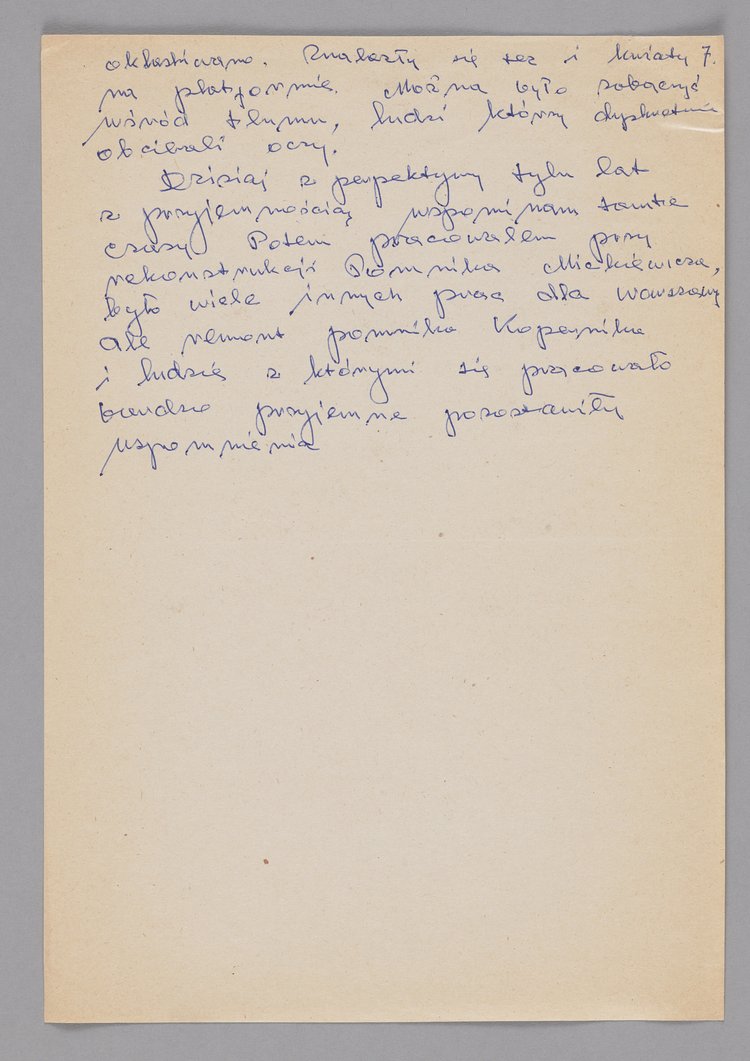 oklaskiwano. Znalazły się też i kwiaty 7.
na platformie. Można było zobaczyć
wśród tłumu, ludzi którzy dyskretnie
obcierali oczy.
Dzisiaj z perpektywy tylu lat
z przyjemnością wspominam tamte
czasy Potem pracowałem przy
rekonstrukcji Pomnika Mickiewicza,
było wiele innych prac dla Warszawy
ale remont pomnika Kopernika
i ludzie z którymi się pracowało
bardzo przyjemne pozostawiły
wspomnienia